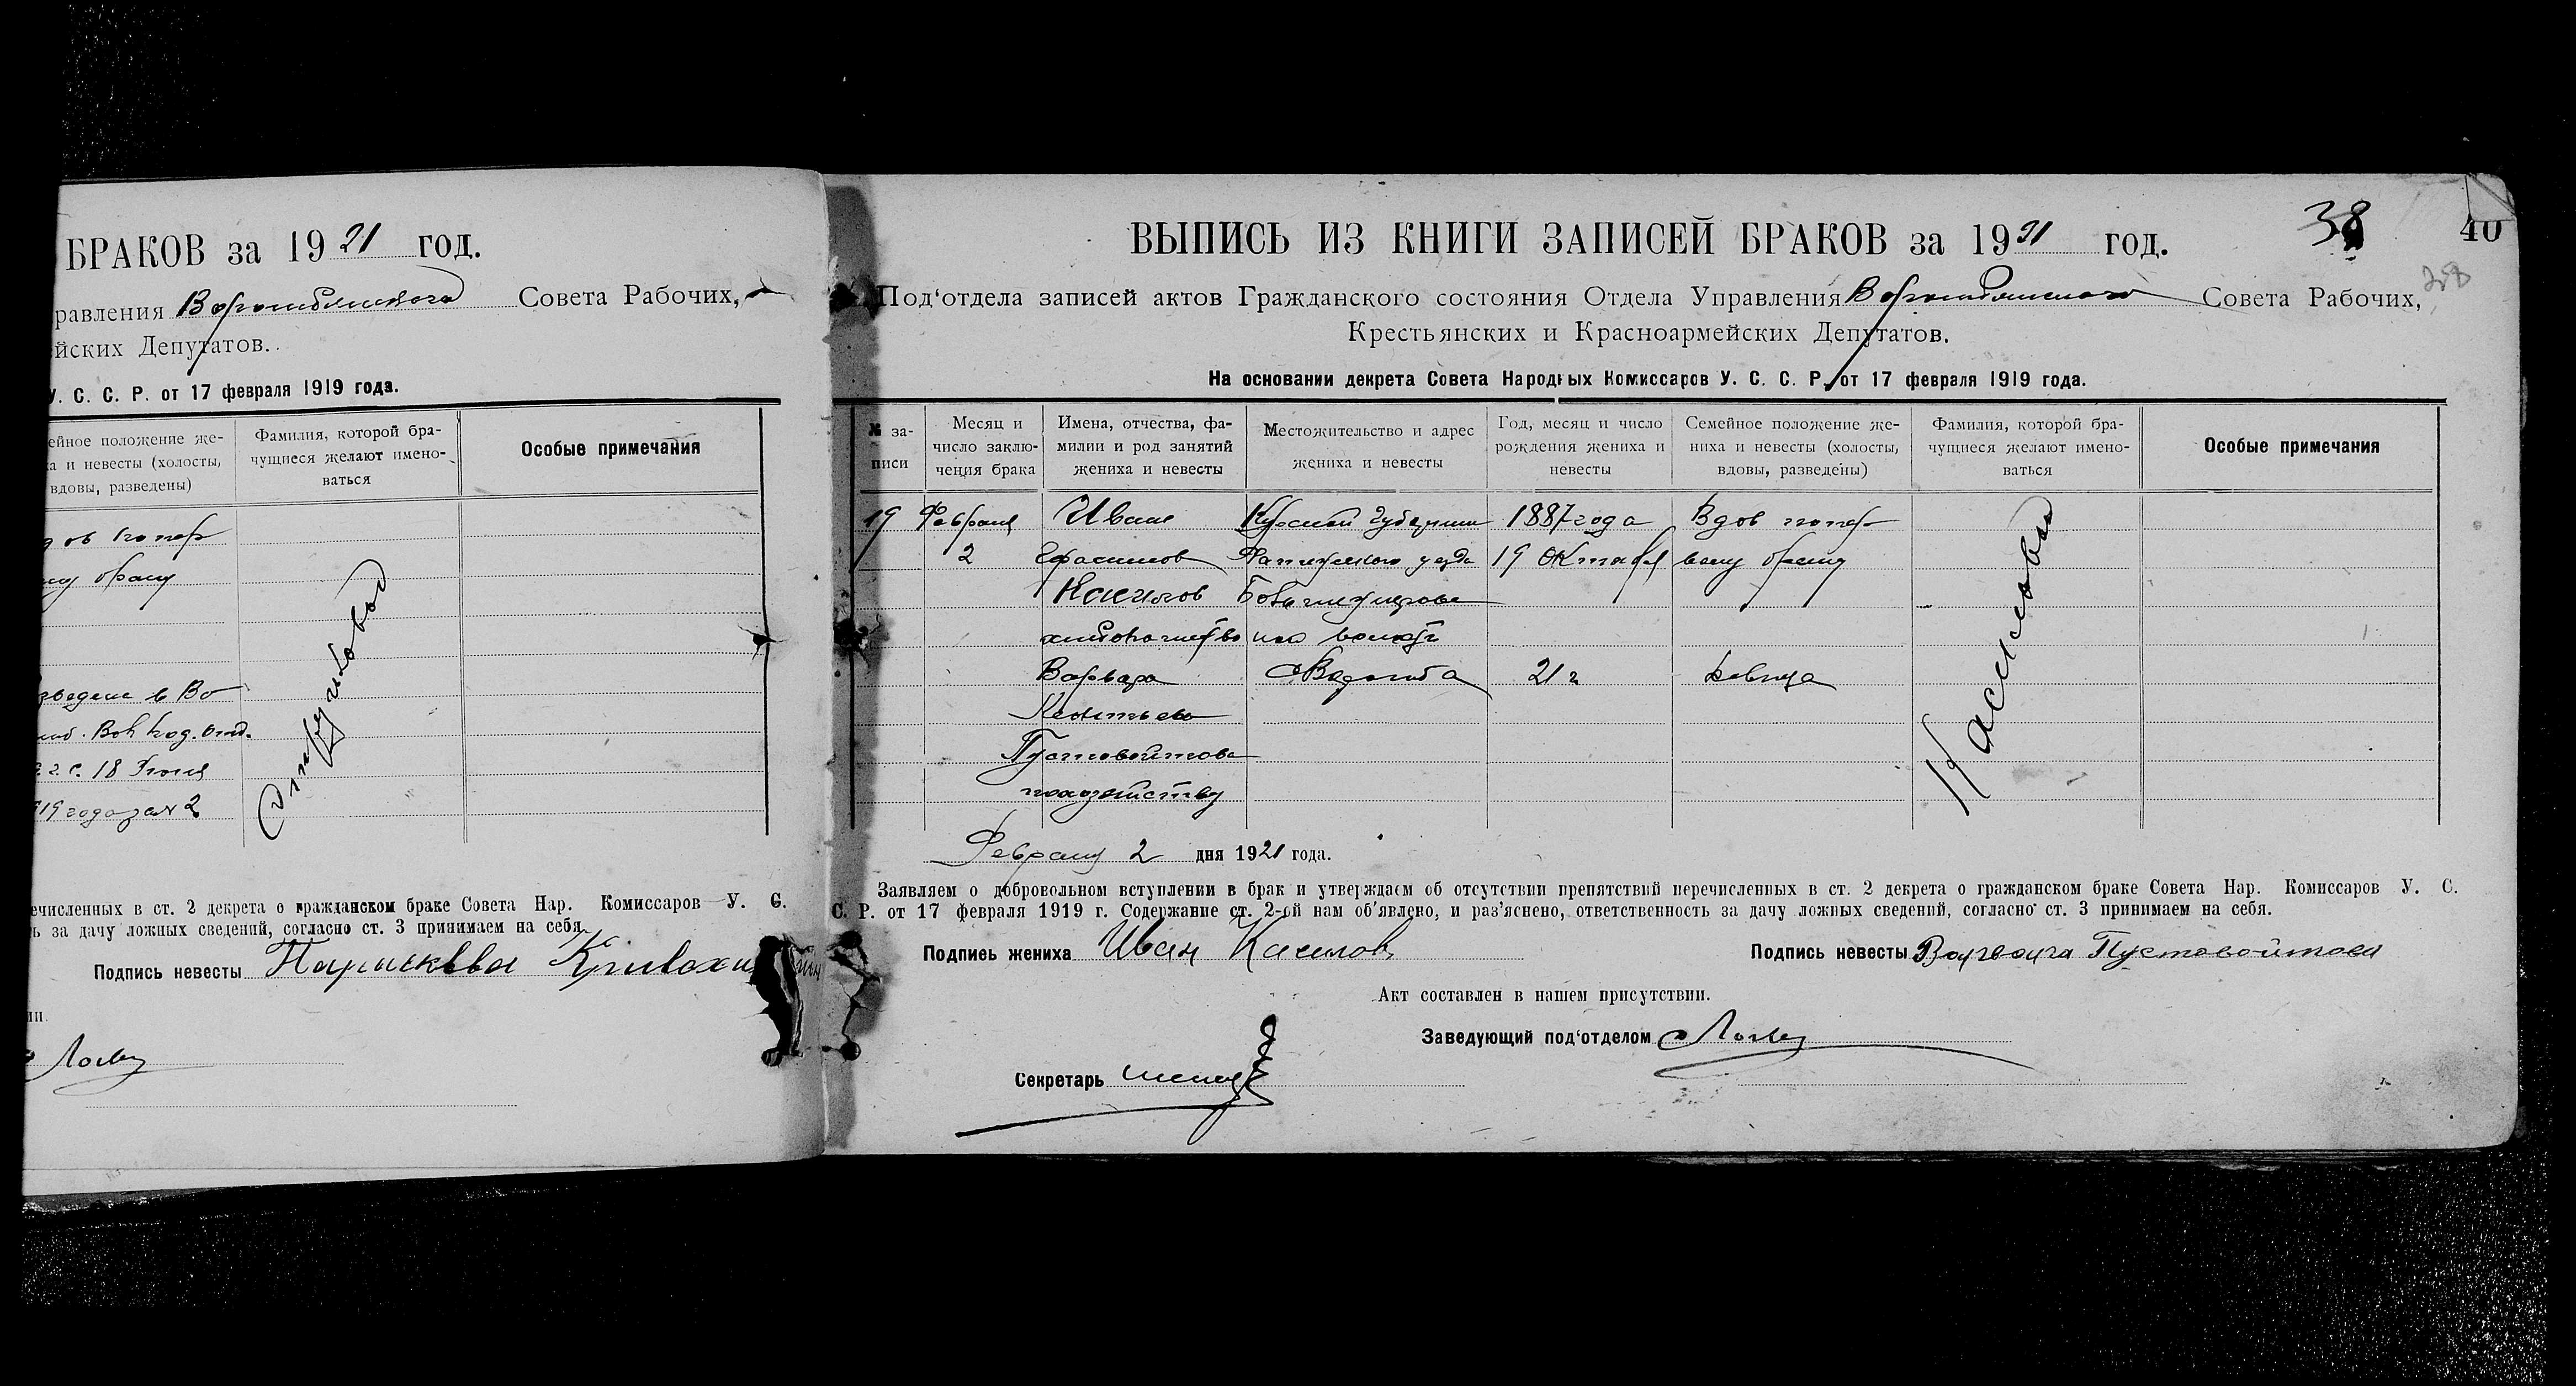 БРАКОВ за 1921 год.
равления Ворожбянского Совета Рабочих,
йских Депутатов.
У. С. С. Р. от 17 февраля 1919 года.
ейное положение же-
а и невесты (холосты,
вдовы, разведены)
Фамилия, которой бра-
чущиеся желают имено-
ваться
Особые примечания
дов по пер
му браку
зведена в Во
18 Июня
919 года за № 2
ечисленных в ст. 2 декрета о гражданском браке Совета Нар. Комиссаров У. С.
ь за дачу ложных сведений, согласно ст. 3 принимаем на себя.
Подпись невесты Парасковья
ии.
ВЫПИСЬ ИЗ КНИГИ ЗАПИСЕЙ БРАКОВ за 1921 год.
38
40
Под‘отдела записей актов Гражданского состояния Отдела Управления Ворожбянского Совета Рабочих,
Крестьянских и Красноармейских Депутатов.
На основании декрета Совета Народных Комиссаров У. С. С. Р. от 17 февраля 1919 года.
№ за-
писи
Месяц и
число заклю-
чения брака
Имена, отчества, фа-
милии и род занятий
жениха и невесты
Местожительство и адрес
жениха и невесты
Год, месяц и число
рождения жениха и
невесты
Семейное положение же-
ниха и невесты (холосты,
вдовы, разведены)
Фамилия, которой бра-
чущиеся желают имено-
ваться
Особые примечания
19 Февраля Иван Курской Губернии 1887 года Вдов по пер-
2 Герасимов Фатежского уезда 19 Октябр вому браку
Касилов
хлебопашество волость
Варвара Ворожба 21 г Девица
Леонтьева
Пустовойтова
по хозяйству
Касиловы
Февраля 2 дня 1921 года.
Заявляем о добровольном вступлении в брак и утверждаем об отсутствии препятствий перечисленных в ст. 2 декрета о гражданском браке Совета Нар. Комиссаров У. С.
С. Р. от 17 февраля 1919 г. Содержание ст. 2-ой нам об'явлено, и раз'яснено, ответственность за дачу ложных сведений, согласно ст. 3 принимаем на себя.
Подпись жениха Иван Касилов
Подпись невесты Варвара Пустовойтова
Акт составлен в нашем присутствии.
Заведующий под‘отделом
Секретарь